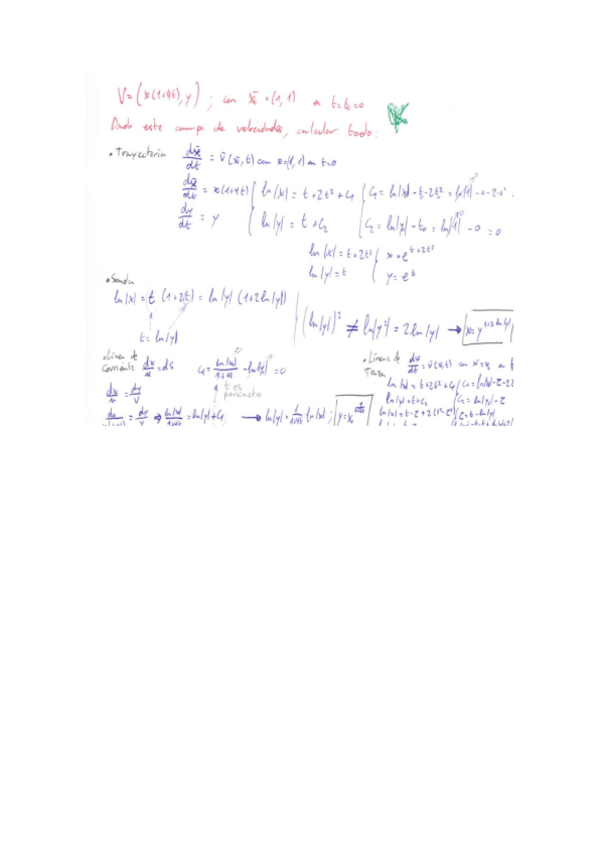 V=(x(1+4t), y) ; con x̄₀=(1,1) en t=t₀=0
Dado este campo de velocidades, calcular todo:
• Trayectoria dx̄/dt = v̄(x̄,t) con x=(1,1) en t=0
dx/dt = x(1+4t) { ln|x| = t+2t²+C₁ { C₁ = ln|x₀|-t₀-2t₀² = ln|1|-0-2·0²
dy/dt = y { ln|y| = t+C₂ { C₂ = ln|y₀|-t₀ = ln|1|-0 = 0
ln|x| = t+2t² { x=e^{t+2t²}
ln|y| = t { y=e^t
• Senda
ln|x| = t (1+2t) = ln|y| (1+2ln|y|)
(ln|y|)² ≠ ln|y²| = 2ln|y| → x=y^{1+2ln|y|}
t = ln|y|
• Línea de Corriente dx̄/ū = ds
C₁ = ln|x₀|/1+4t - ln|y₀| = 0
t es parámetro
dx/u = dy/v
= dy/y ⇒ ln|x|/1+4t = ln|y|+C₁ → ln|y| = 1/1+4t ln|x| ;
• Líneas de Traza dx̄/dt = v̄(x̄,t) con x̄=x̄₀
ln|x| = t+2t²+C₁
ln|y| = t+C₂ { C₂ = ln|y₀|-τ
ln|x| = t-τ+2(t²-τ²) { τ = t-ln|y|